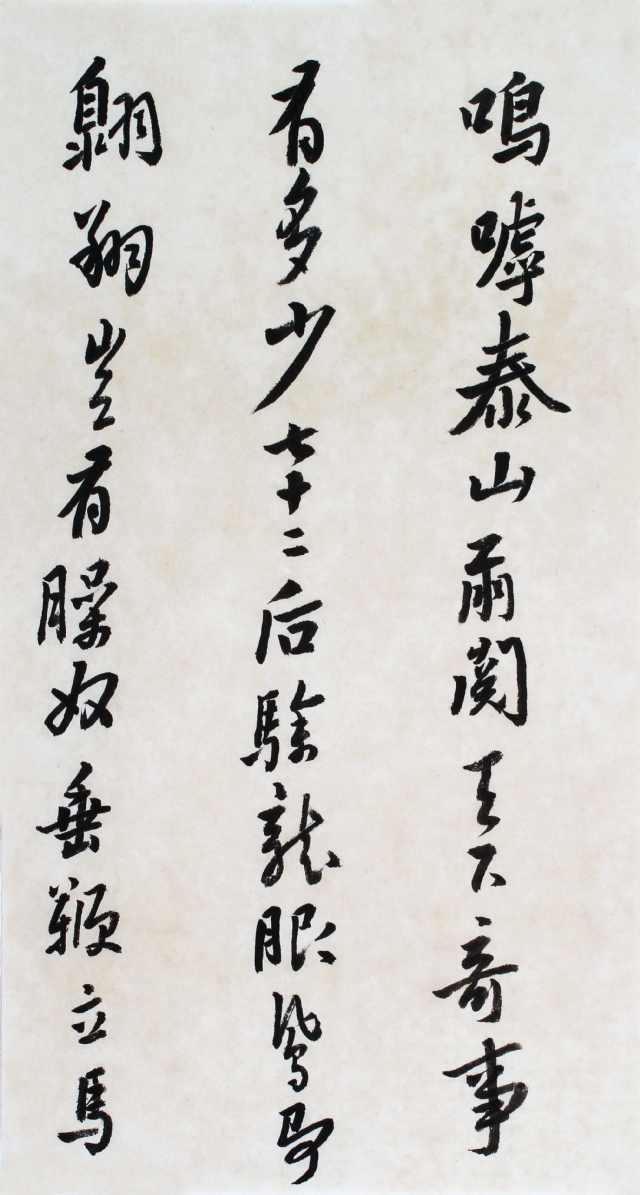 嗚嘑泰山爾閱天下奇事
有多少七十二后驂龍
翺翔豈有臊奴垂鞭立馬